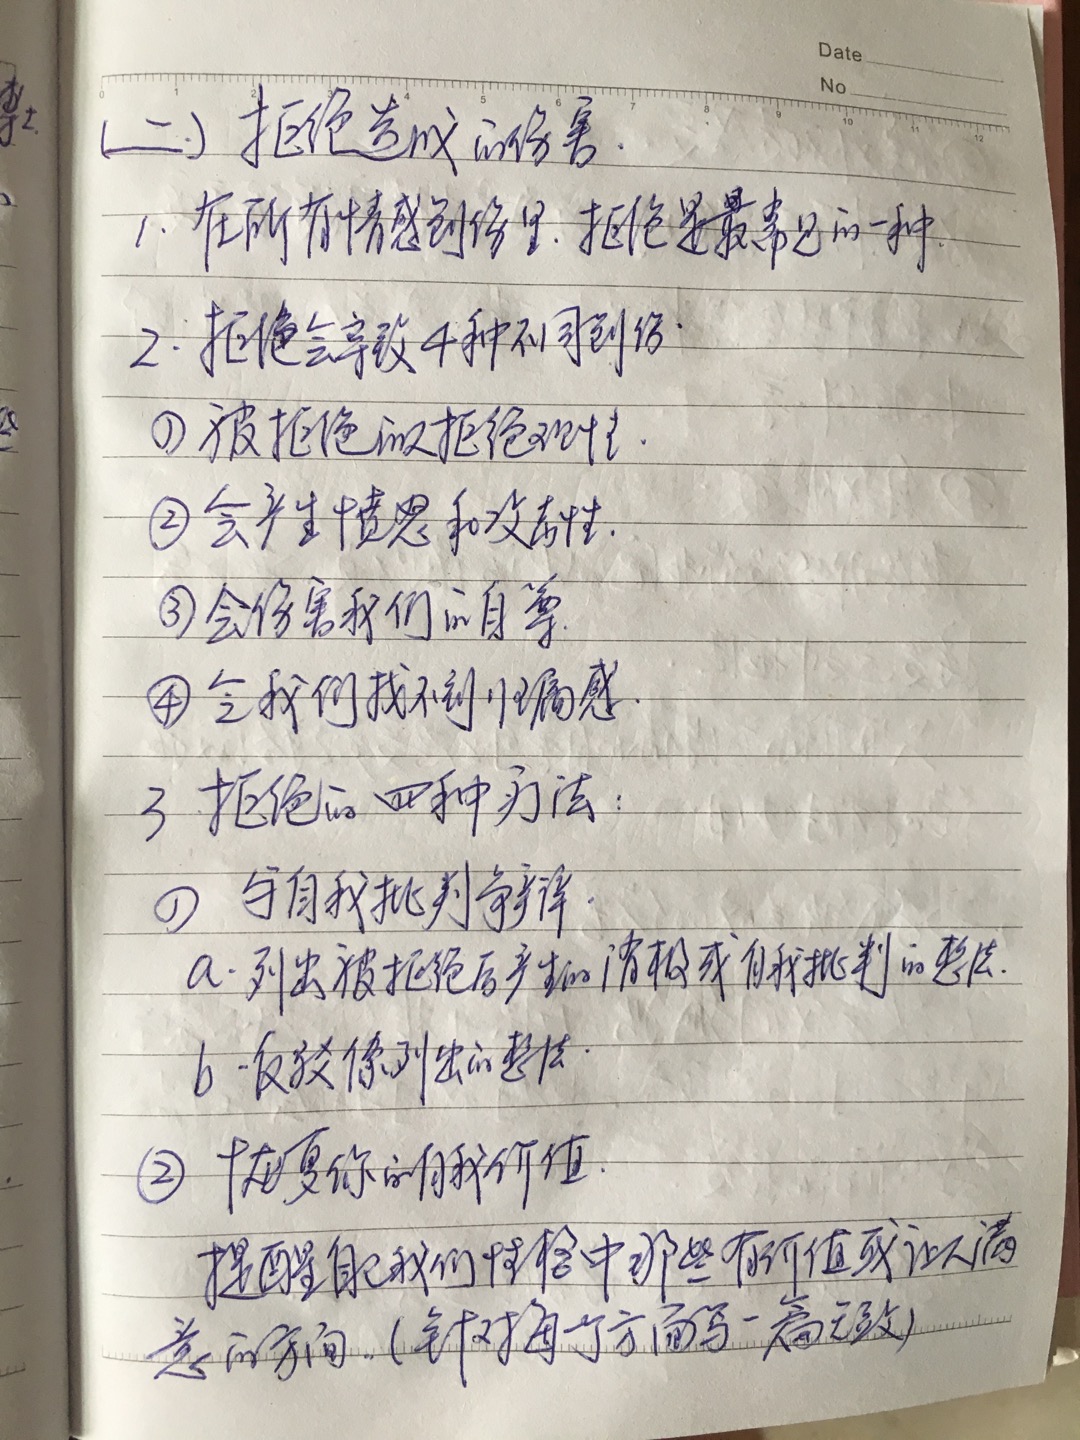 Date
No
0 1 2 3 4 5 6 7 8 9 10 11 12
(二) 拒绝造成的伤害.
1. 在所有情感创伤里.拒绝是最常见的一种.
2. 拒绝会导致4种不同创伤.
① 被拒绝的拒绝
② 会产生愤怒和攻击性.
③ 会伤害我们的自尊.
④ 会我们找不到归属感.
3 拒绝的四种疗法:
① 与自我批判争辩.
a. 列出被拒绝后产生的消极或自我批判的想法.
b. 反驳你列出的想法.
② 恢复你的自我价值.
提醒自己我们性格中那些有价值或让人满
意的方面.(针对每一个方面写一篇)